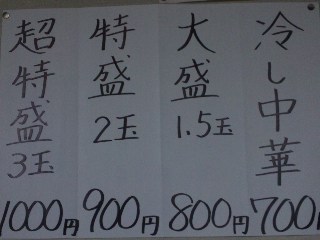 冷し中華 700
大盛 1.5玉 800円
特盛 2玉 900円
超特盛 3玉 1000円